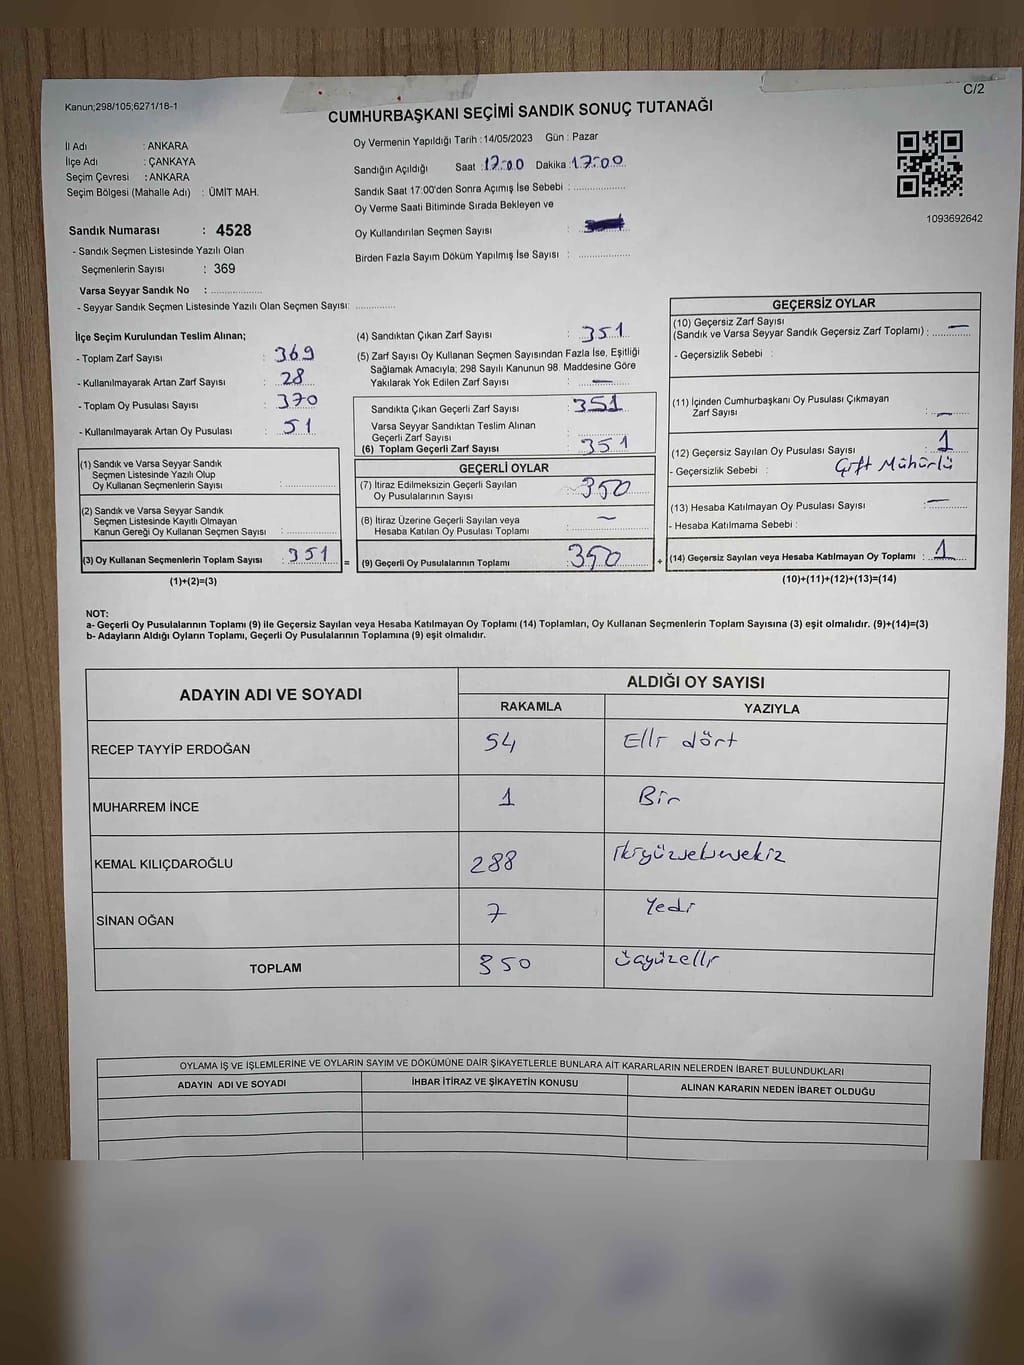 C/2
Kanun;298/105;6271/18-1
CUMHURBAŞKANI SEÇİMİ SANDIK SONUÇ TUTANAĞI
İl Adı : ANKARA
İlçe Adı : ÇANKAYA
Seçim Çevresi : ANKARA
Seçim Bölgesi (Mahalle Adı) : ÜMİT MAH.
Oy Vermenin Yapıldığı Tarih : 14/05/2023 Gün : Pazar
Sandığın Açıldığı Saat : 17:00 Dakika : 17:00
Sandık Saat 17:00'den Sonra Açımış İse Sebebi :
Oy Verme Saati Bitiminde Sırada Bekleyen ve
Oy Kullandırılan Seçmen Sayısı :
Birden Fazla Sayım Döküm Yapılmış İse Sayısı :
1093692642
Sandık Numarası : 4528
- Sandık Seçmen Listesinde Yazılı Olan
Seçmenlerin Sayısı : 369
Varsa Seyyar Sandık No :
- Seyyar Sandık Seçmen Listesinde Yazılı Olan Seçmen Sayısı:
İlçe Seçim Kurulundan Teslim Alınan;
- Toplam Zarf Sayısı : 369
- Kullanılmayarak Artan Zarf Sayısı : 28
- Toplam Oy Pusulası Sayısı : 370
- Kullanılmayarak Artan Oy Pusulası : 51
(1) Sandık ve Varsa Seyyar Sandık
Seçmen Listesinde Yazılı Olup
Oy Kullanan Seçmenlerin Sayısı :
(2) Sandık ve Varsa Seyyar Sandık
Seçmen Listesinde Kayıtlı Olmayan
Kanun Gereği Oy Kullanan Seçmen Sayısı :
(3) Oy Kullanan Seçmenlerin Toplam Sayısı : 351 =
(1)+(2)=(3)
(4) Sandıktan Çıkan Zarf Sayısı : 351
(5) Zarf Sayısı Oy Kullanan Seçmen Sayısından Fazla İse, Eşitliği
Sağlamak Amacıyla; 298 Sayılı Kanunun 98. Maddesine Göre
Yakılarak Yok Edilen Zarf Sayısı : —
Sandıkta Çıkan Geçerli Zarf Sayısı : 351
Varsa Seyyar Sandıktan Teslim Alınan
Geçerli Zarf Sayısı :
(6) Toplam Geçerli Zarf Sayısı : 351
GEÇERLİ OYLAR
(7) İtiraz Edilmeksizin Geçerli Sayılan
Oy Pusulalarının Sayısı : 350
(8) İtiraz Üzerine Geçerli Sayılan veya
Hesaba Katılan Oy Pusulası Toplamı : —
(9) Geçerli Oy Pusulalarının Toplamı : 350 +
GEÇERSİZ OYLAR
(10) Geçersiz Zarf Sayısı
(Sandık ve Varsa Seyyar Sandık Geçersiz Zarf Toplamı) : —
- Geçersizlik Sebebi :
(11) İçinden Cumhurbaşkanı Oy Pusulası Çıkmayan
Zarf Sayısı : —
(12) Geçersiz Sayılan Oy Pusulası Sayısı : 1
- Geçersizlik Sebebi : Çift Mühürlü
(13) Hesaba Katılmayan Oy Pusulası Sayısı : —
- Hesaba Katılmama Sebebi :
(14) Geçersiz Sayılan veya Hesaba Katılmayan Oy Toplamı : 1
(10)+(11)+(12)+(13)=(14)
NOT:
a- Geçerli Oy Pusulalarının Toplamı (9) ile Geçersiz Sayılan veya Hesaba Katılmayan Oy Toplamı (14) Toplamları, Oy Kullanan Seçmenlerin Toplam Sayısına (3) eşit olmalıdır. (9)+(14)=(3)
b- Adayların Aldığı Oyların Toplamı, Geçerli Oy Pusulalarının Toplamına (9) eşit olmalıdır.
ADAYIN ADI VE SOYADI ALDIĞI OY SAYISI
RAKAMLA YAZIYLA
RECEP TAYYİP ERDOĞAN 54 Elli dört
MUHARREM İNCE 1 Bir
KEMAL KILIÇDAROĞLU 288 ikiyüzseksensekiz
SİNAN OĞAN 7 Yedi
TOPLAM 350 üçyüzelli
OYLAMA İŞ VE İŞLEMLERİNE VE OYLARIN SAYIM VE DÖKÜMÜNE DAİR ŞİKAYETLERLE BUNLARA AİT KARARLARIN NELERDEN İBARET BULUNDUKLARI
ADAYIN ADI VE SOYADI İHBAR İTİRAZ VE ŞİKAYETİN KONUSU ALINAN KARARIN NEDEN İBARET OLDUĞU